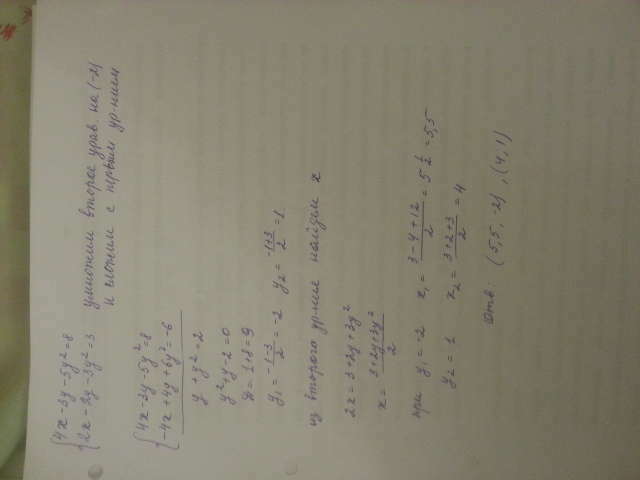 {4x-3y-5y²=8 умножим второе урав. на (-2)
{2x-2y-3y²=3 и сложим с первым ур-нием
{4x-3y-5y²=8
{-4x+4y+6y²=-6
y+y²=2
y²+y-2=0
D=1+8=9
y₁=(-1-3)/2=-2 y₂=(-1+3)/2=1
из второго ур-ния найдем x
2x=3+2y+3y²
x=(3+2y+3y²)/2
при y₁=-2 x₁=(3-4+12)/2=5 1/2=5,5
y₂=1 x₂=(3+2+3)/2=4
отв: (5,5, -2), (4, 1)